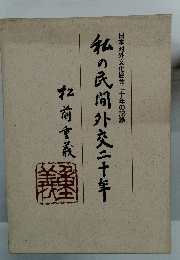 日本対外文化協会二十年の記録
私の民間外交二十年
松前重義
重義